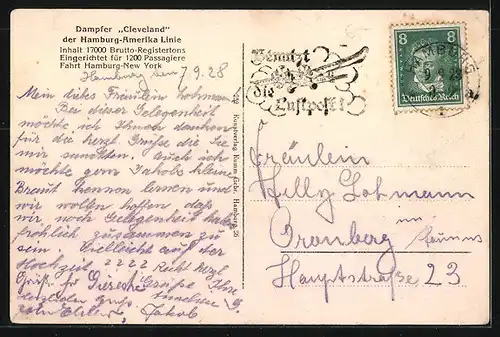 Dampfer „Cleveland"
der Hamburg-Amerika Linie
Inhalt 17000 Brutto-Registertons
Eingerichtet für 1200 Passagiere
Fahrt Hamburg-New York
Hamburg den 7 9. 28
Mein liebes Fräulein Lohmann
Bei dieser Gelegenheit
möchte ich Ihnen danken
für die herzl. Grüße die Sie
mir sandten. Auch ich
möchte gern Jakobs kleine
Braut kennen lernen und
wir wollen hoffen daß
wir noch Gelegenheit haben
fröhlich zusammen zu
sein. Vielleicht auf der
Hochzeit ???? Recht herzl
Grüße Ihre
Herzlichen
Jakob
Kunstverlag Hamburg 26
Benutzt
die
Luftpost!
HAMBURG
8 8
Deutsches Reich
Fräulein
Willy Lohmann
in
Cronberg Taunus
Hauptstraße 23